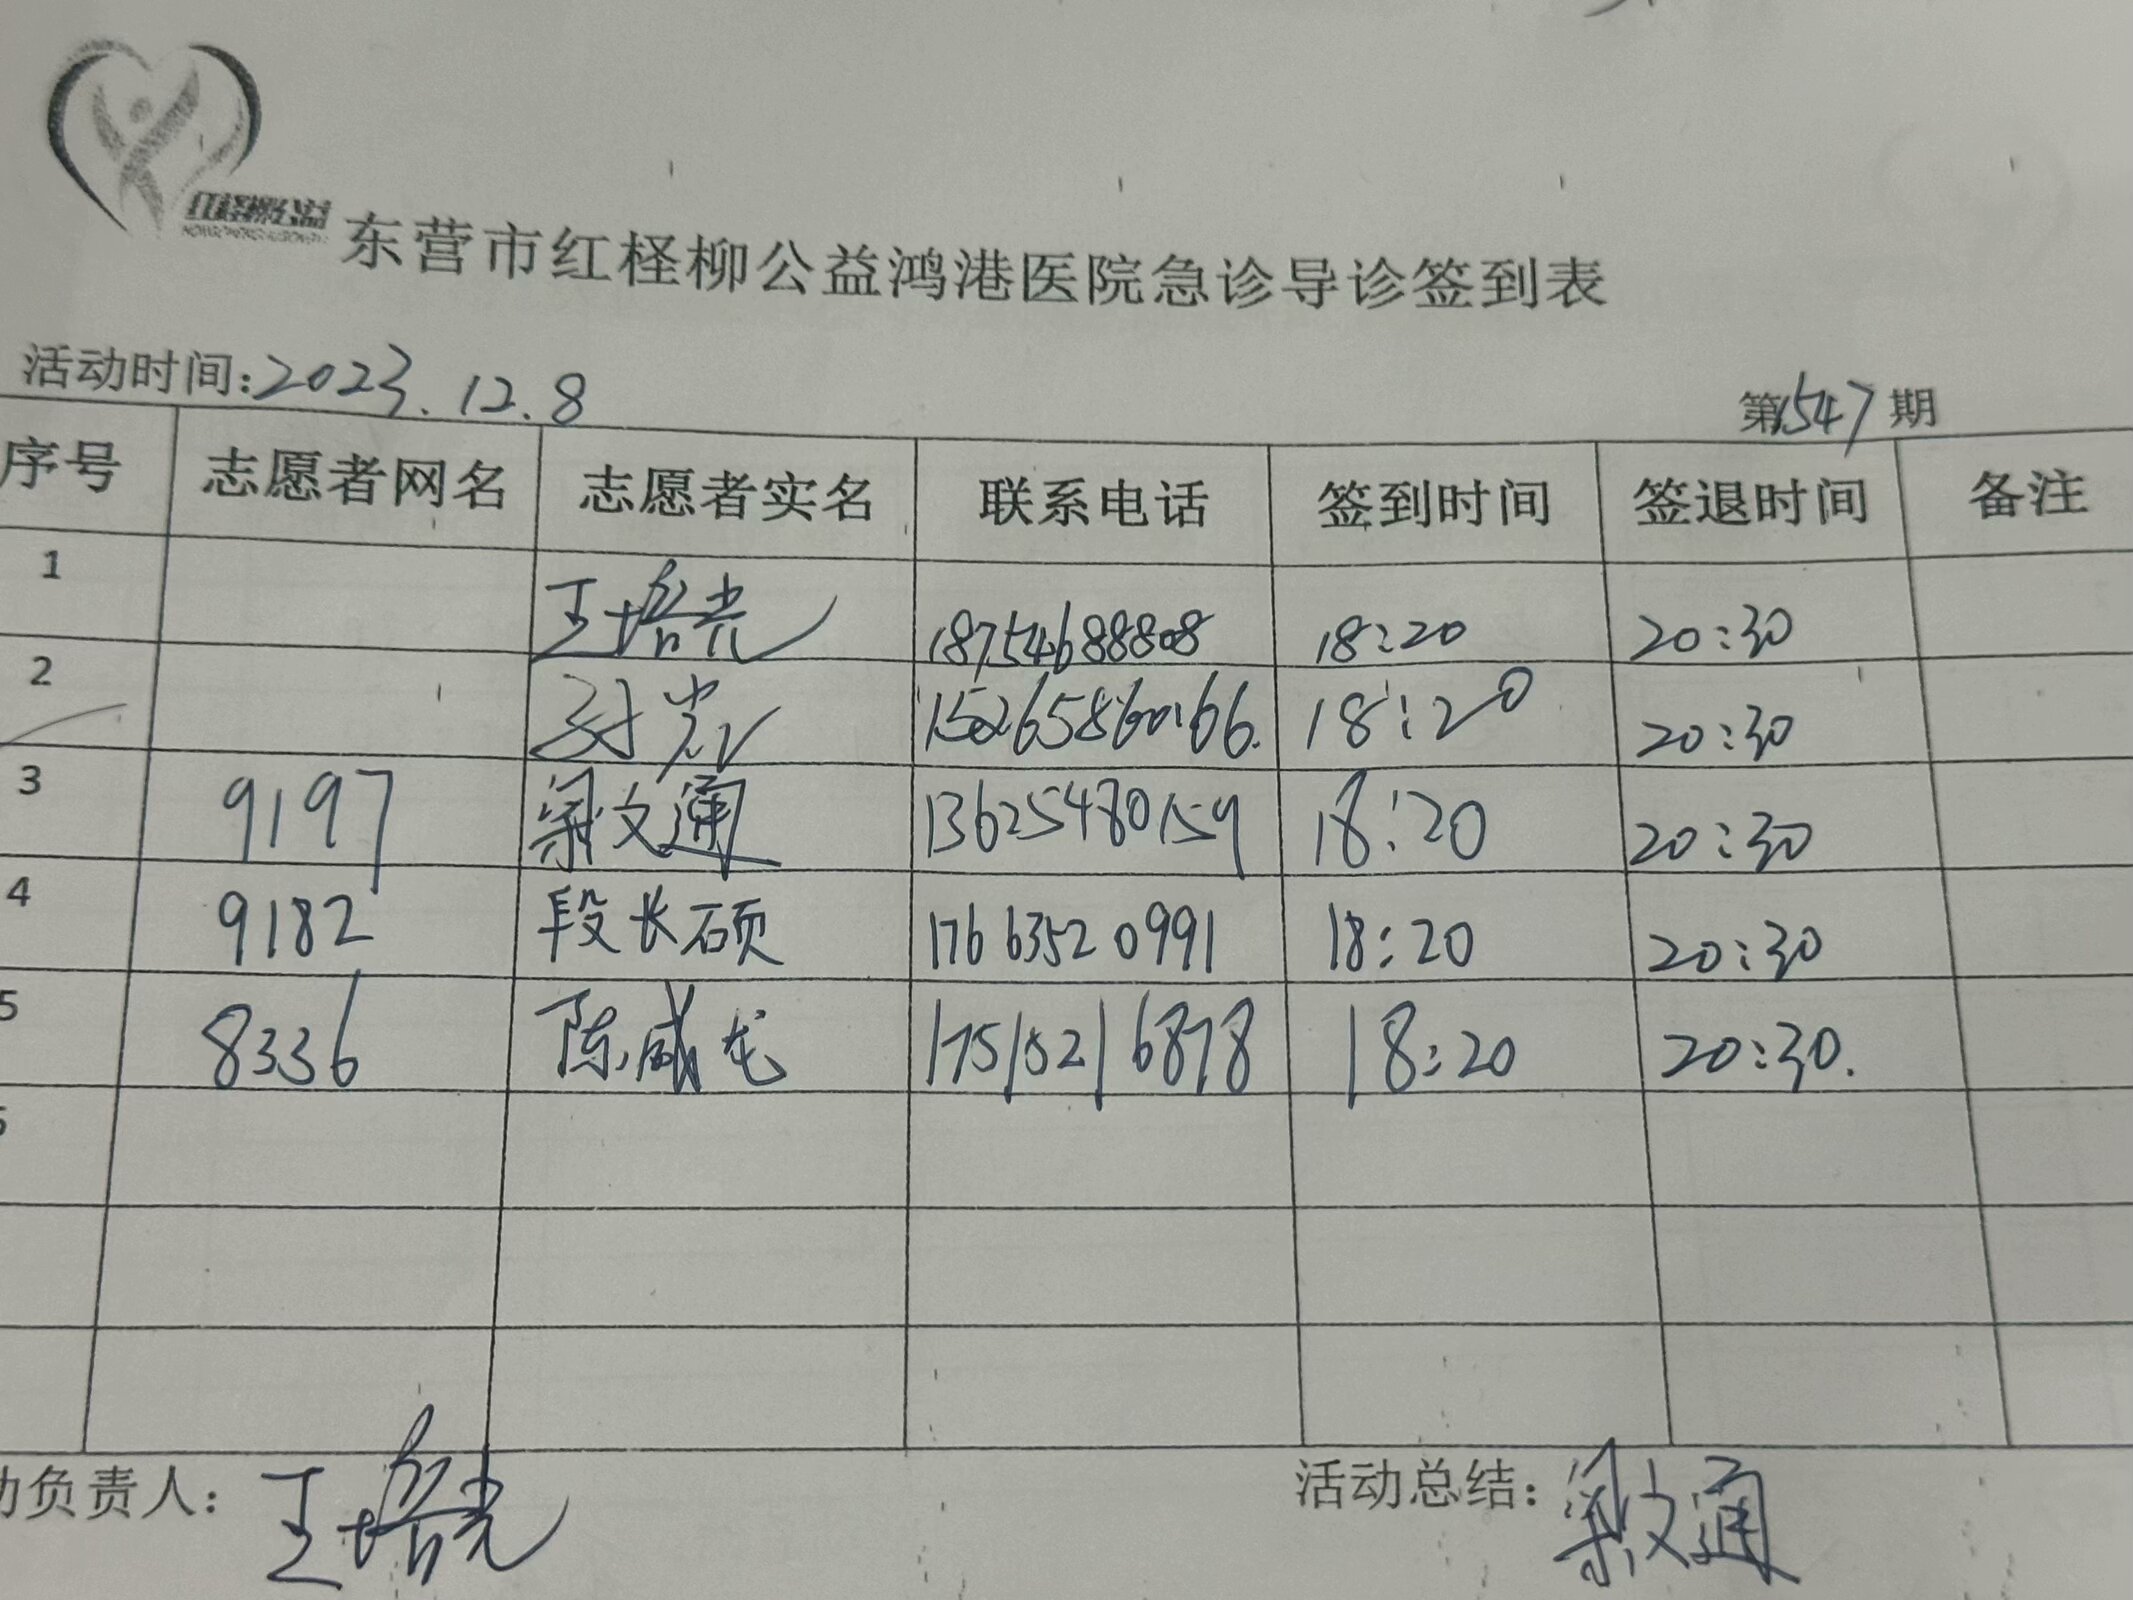 红柽柳公益
东营市红柽柳公益鸿港医院急诊导诊签到表
活动时间:2023.12.8
第1547期
序号 志愿者网名 志愿者实名 联系电话 签到时间 签退时间 备注
1 王培亮 18754688808 18:20 20:30
2 15265860166. 18:20 20:30
3 9197 梁文通 13625480159 18:20 20:30
4 9182 段长硕 17663520991 18:20 20:30
5 8336 陈威龙 17515216878 18:20 20:30.
动负责人: 王培亮
活动总结: 梁文通